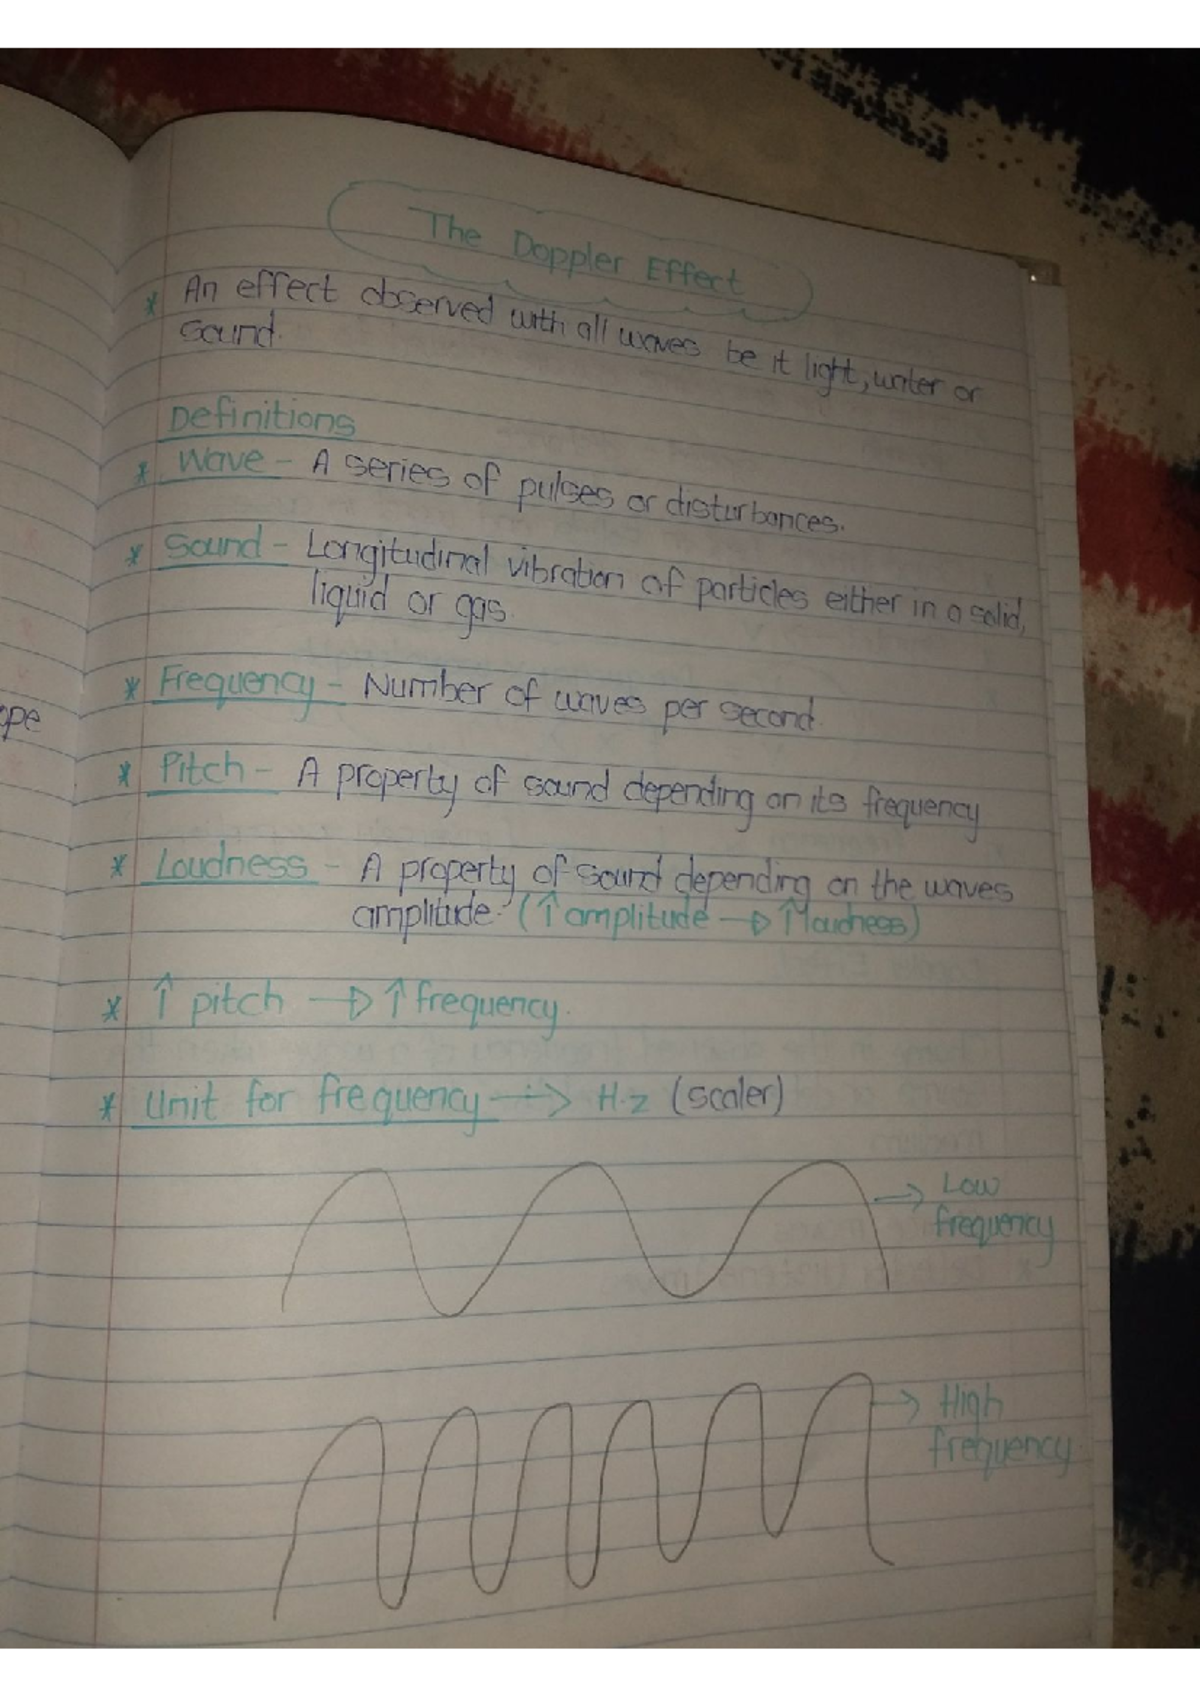 The Doppler Effect
* An effect observed with all waves be it light, water or
sound.
Definitions
* Wave - A series of pulses or disturbances.
* Sound - Longitudinal vibration of particles either in a solid,
liquid or gas.
* Frequency - Number of waves per second.
ope
* Pitch - A property of sound depending on its frequency
* Loudness - A property of sound depending on the waves
amplitude. (↑ amplitude → ↑ loudness)
* ↑ pitch → ↑ frequency.
* Unit for frequency → Hz (scaler)
→ Low
frequency
→ High
frequency